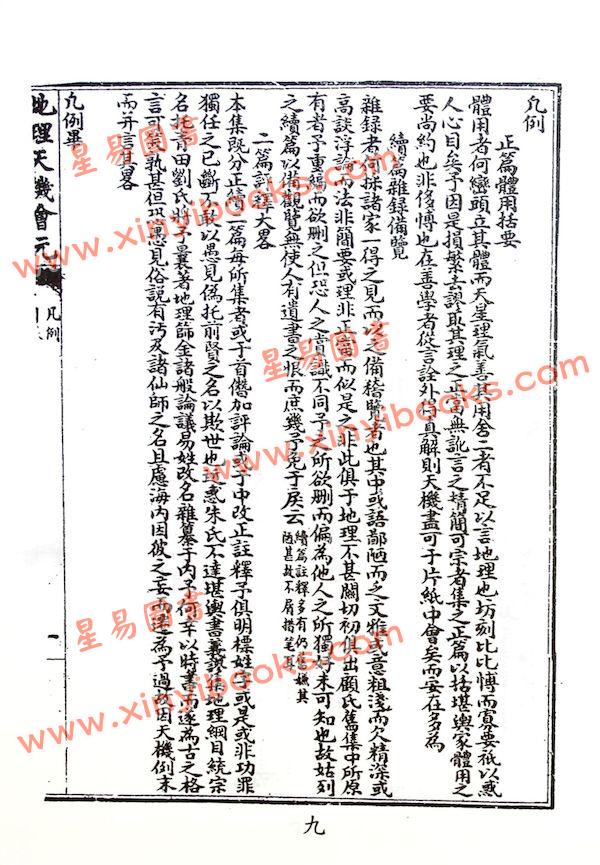 凡例
正篇體用括要
體用者何巒頭立其體而天星理氣善其用舍二者不足以言地理也坊刻比比愽而寡要祇以惑
人心目矣予因是損繁去謬取其理之正當無訛言之精簡可宗者集之正篇以括堪輿家體用之
要尚約也非侈愽也在善學者從言詮外得真解則天機盡可于片紙中會矣而安在多為
續篇雜錄備覽
雜錄者何採諸家一得之見而以之備稽覽者也其中或語鄙陋而之文雅或意粗淺而欠精深或
高談浮論而法非簡要或理非正當而似是之非此俱于地理不甚關切初俱出顧氏舊集中所原
有者予重編而欲刪之但恐人之肯識不同予之所欲刪而偏為他人之所獨好未可知也故姑列
之續篇以備觀覽無使人有遺書之恨而庶幾予免于戾云
續篇註釋多有仍舊嫌其
陋甚故不屑措筆耳
二篇註釋大畧
本集既分正續二篇每所集者或于首僭加評論或于中改正註釋予俱明標姓字或是或非功罪
獨任之已斷不敢以愚見偽托前賢之名以欺世也近惑朱氏不達堪輿書義謬集地理綱目統宗
名托青田劉氏將予曩著地理師全諸般論議易姓改名雜纂于內予何幸以時書而遂為古之格
言可笑孰甚但恐愚見俗說有污及諸仙師之名且慮海內因彼之妄而還為予過故因天機倒末
而并言其畧
凡例畢
地理天機會元
凡例
一
九
星易圖書
www.xinyibooks.com
星易圖書
www.xinyibooks.com
星易圖書
www.xinyibooks.com